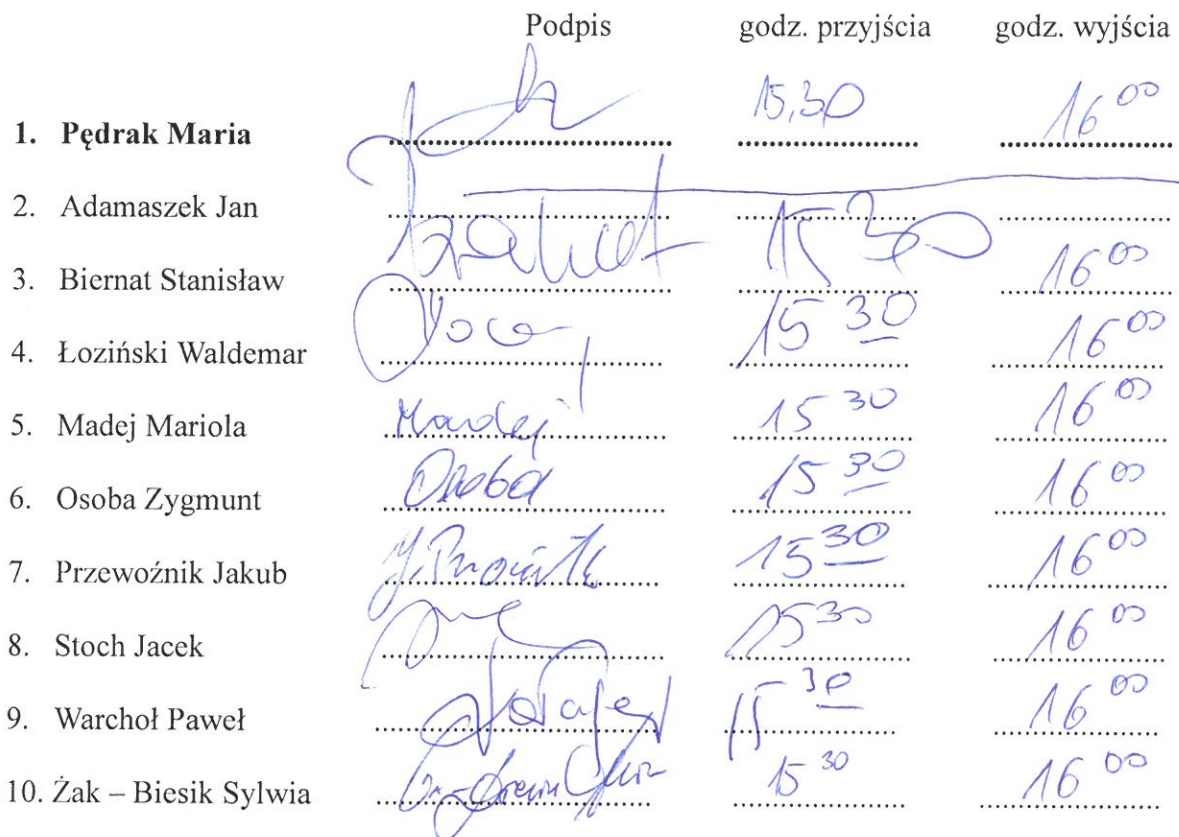 Podpis godz. przyjścia godz. wyjścia
1. Pędrak Maria 15,30 16 00
2. Adamaszek Jan
3. Biernat Stanisław 15 30 16 00
4. Łoziński Waldemar 15 30 16 00
5. Madej Mariola Madej 15 30 16 00
6. Osoba Zygmunt Osoba 15 30 16 00
7. Przewoźnik Jakub 15 30 16 00
8. Stoch Jacek 15 30 16 00
9. Warchoł Paweł 15 30 16 00
10. Żak – Biesik Sylwia 15 30 16 00